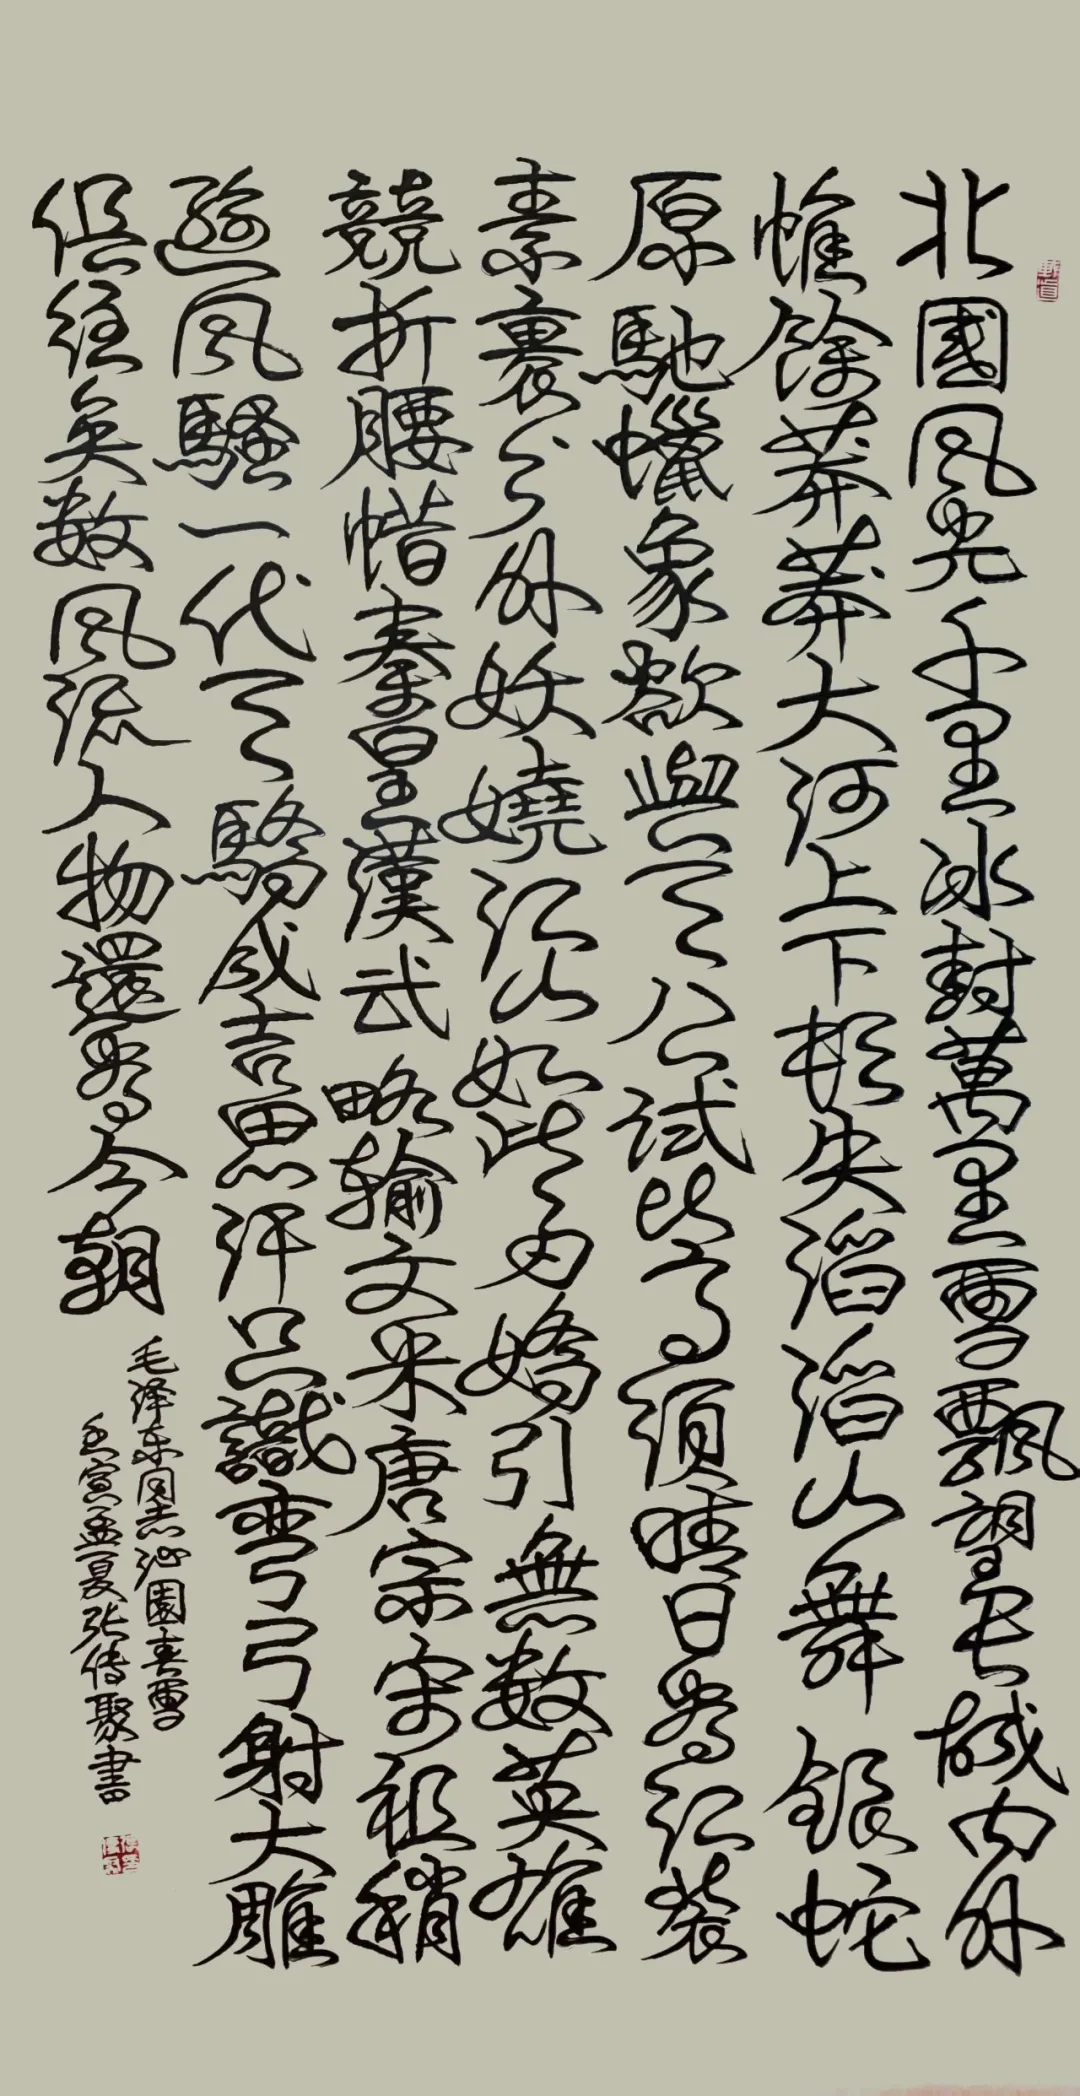 北國風光千里冰封萬里雪飄望長城内外
惟餘莽莽大河上下頓失滔滔山舞銀蛇
原馳蠟象欲與天公試比高須晴日看红装
素裹分外妖嬈江山如此多嬌引無数英雄
競折腰惜秦皇漢武略输文采唐宗宋祖稍
遜風騷一代天驕成吉思汗只識彎弓射大雕
俱往矣数風流人物還看今朝
毛泽东同志沁園春雪
壬寅孟夏张传聚書